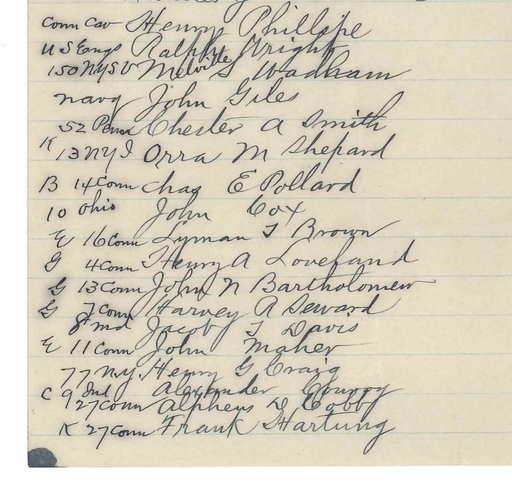 Conn Cav Henry Phillipe
U S Engs Ralph Wright
150 NYSV Melville S Wadham
navy John Giles
52 Penn Chester A Smith
K 13 NY I Orra M Shepard
B 14 Conn Chas E Pollard
10 Ohio John Cox
E 16 Conn Lyman T Brown
G 4 Conn Henry A Loveland
G 13 Conn John N Bartholomew
G 7 Conn Harvey A Seward
8 Md Jacob T Davis
E 11 Conn John Maher
77 N.Y. Henry G Craig
C 9 Ind Alexander
27 Conn Alpheus D Cobb
K 27 Conn Frank Hartung